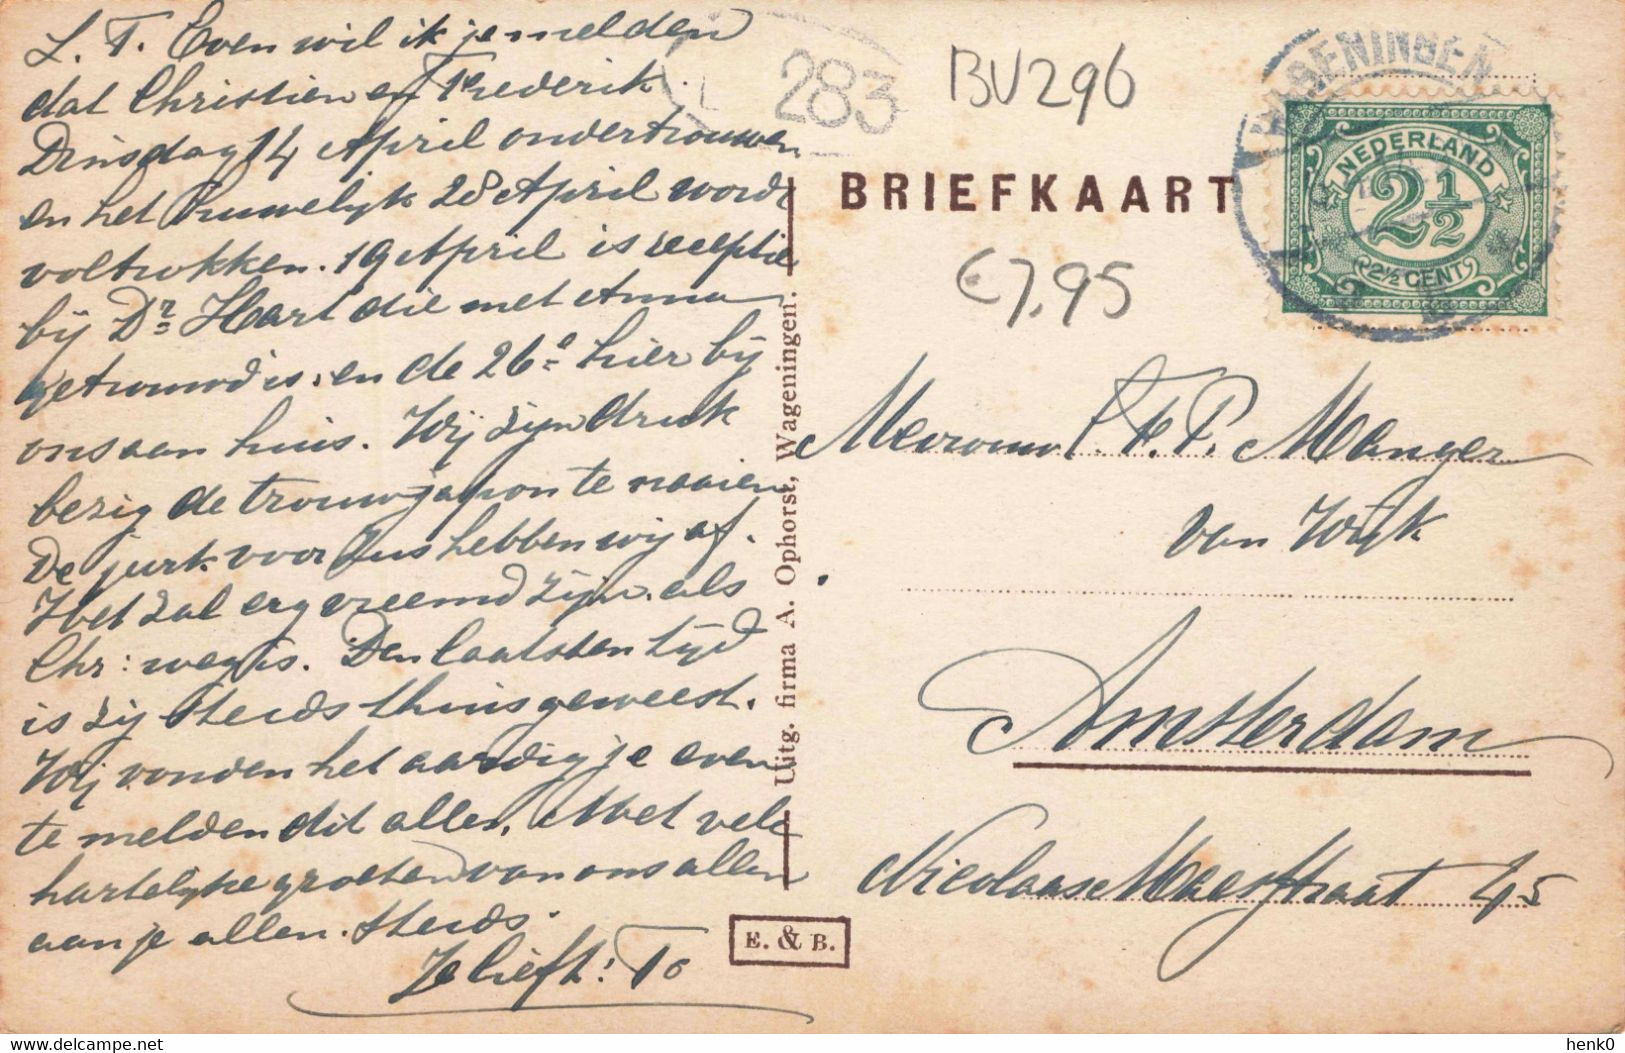 L. T. Even wil ik je melden
dat Christien en Frederik
Dinsdag 14 April ondertrouwen
en het huwelijk 28 April wordt
voltrokken. 19 April is receptie
bij Dr Hart die met Anna
getrouwd is. en de 26e hier bij
ons aan huis. Wij zijn druk
bezig de trouwjapon te naaien.
De jurk voor Zus hebben wij af.
Het zal erg vreemd zijn. als
Chr: weg is. Den laatsten tijd
is zij steeds thuis geweest.
Wij vonden het aardig je even
te melden dit alles. Met vele
hartelijke groeten van ons allen
aan je allen. Steeds.
Je liefh: To
283
BV296
WAGENINGEN
NEDERLAND
2 1/2
2½ CENT
BRIEFKAART
€7,95
Mevrouw F. P. Manger
van Wijk
Amsterdam
Nicolaas Maesstraat 45
Uitg. firma A. Ophorst, Wageningen.
E. & B.
delcampe.net
henk0